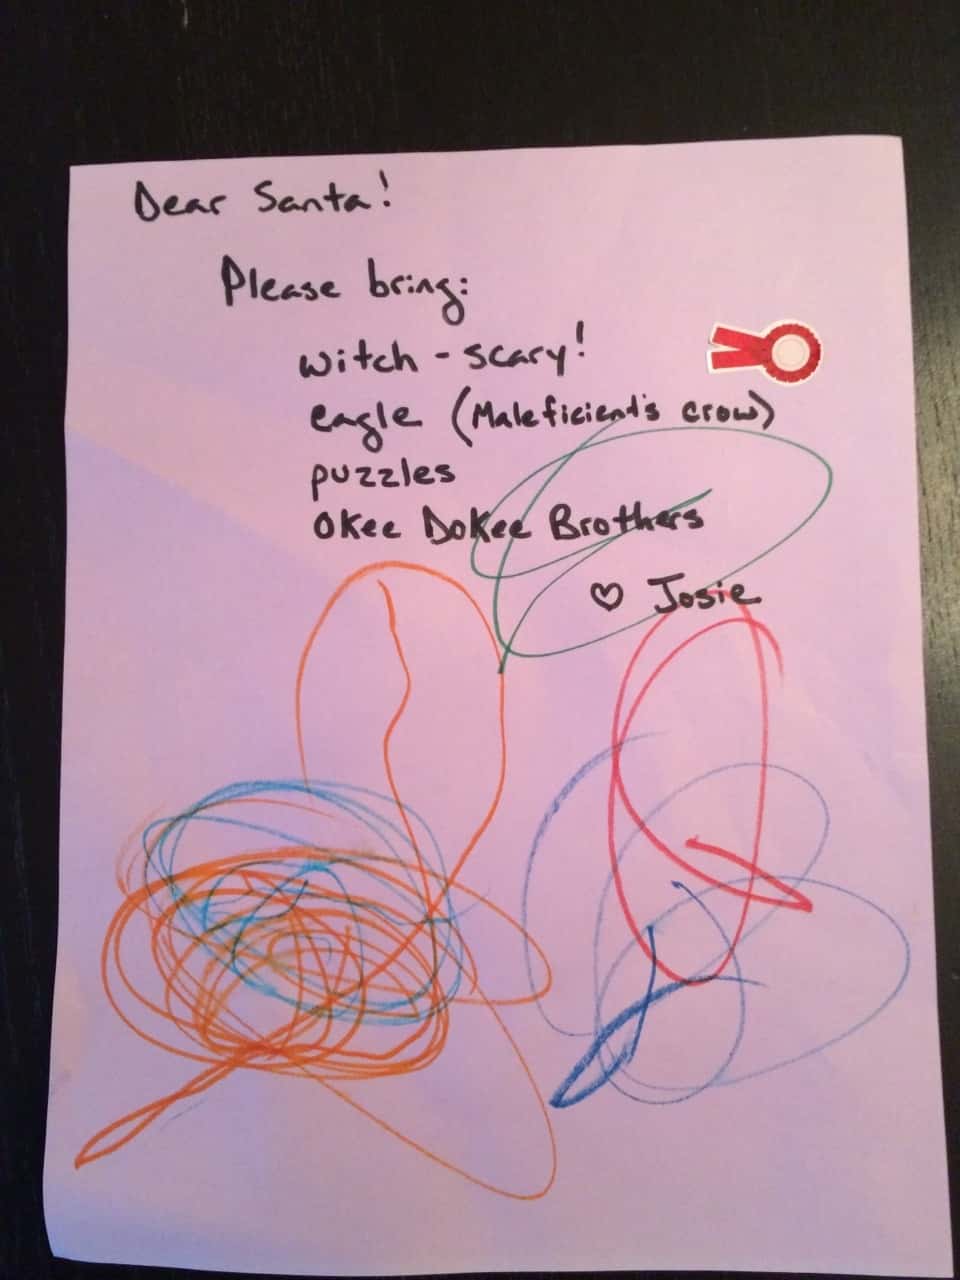 Dear Santa!
Please bring:
witch - scary!
eagle (Maleficient's crow)
puzzles
Okee Dokee Brothers
♡ Josie